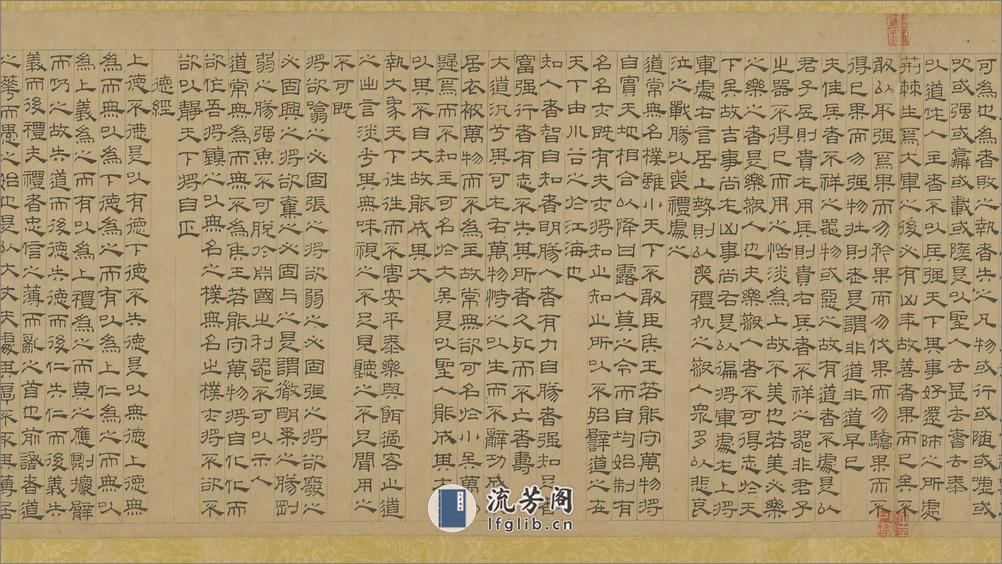 可為也為者敗之執者失之凡物或行或随或嘘或
吹或强或羸或載或隳是以聖人去甚去奢去泰
以道佐人主者不以兵强天下其事好還師之所處
荆棘生焉大軍之後必有凶年故善者果而已矣不
敢以取强焉果而勿矜果而勿伐果而勿驕果而不
得已果而勿强物壯則老是謂非道非道早已
夫佳兵者不祥之器物或惡之故有道者不處是以
君子居則貴左用兵則貴右兵者不祥之器非君子
之器不得已而用之恬淡為上故不美也若美必樂
之樂之者是樂殺人也夫樂殺人者不可得志於天
下矣故吉事尚左凶事尚右是以偏將軍處左上將
軍處右言居上勢則以喪禮處之殺人衆多以悲哀
泣之戰勝以喪禮處之
道常無名樸雖小天下不敢臣侯王若能守萬物將
自賓天地相合以降甘露人莫之令而自均始制有
名名亦既有夫亦將知止知止所以不殆譬道之在
天下由川谷之於江海也
知人者智自知者明勝人者有力自勝者强知足
富强行者有志不失其所者久死而不亡者壽
大道汎兮其可左右萬物恃之以生而不辭功成
居衣被萬物而不為主故常無欲可名於小矣萬
歸焉而不知主可名於大矣是以聖人能成其大
以其不自大故能成其大
執大象天下往往而不害安平泰樂與餌過客止道
之出言淡兮其無味視之不足見聽之不足聞用之
不可既
將欲翕之必固張之將欲弱之必固强之將欲廢之
必固興之將欲奪之必固與之是謂微明柔之勝剛
弱之勝强魚不可脫於淵國之利器不可以示人
道常無為而無不為侯王若能守萬物將自化化而
欲作吾將鎮之以無名之樸無名之樸亦將不欲不
欲以靜天下將自正
德經
上德不德是以有德下德不失德是以無德上德
為而無以為下德為之而有以為上仁為之而無以
為上義為之而有以為上禮為之而莫之應則攘臂
而仍之故失道而後德失德而後仁失仁而後義失
義而後禮夫禮者忠信之薄而亂之首也前識者道
之華而愚之始也是以大丈夫處其厚不處其薄居
流芳阁
lfglib.cn